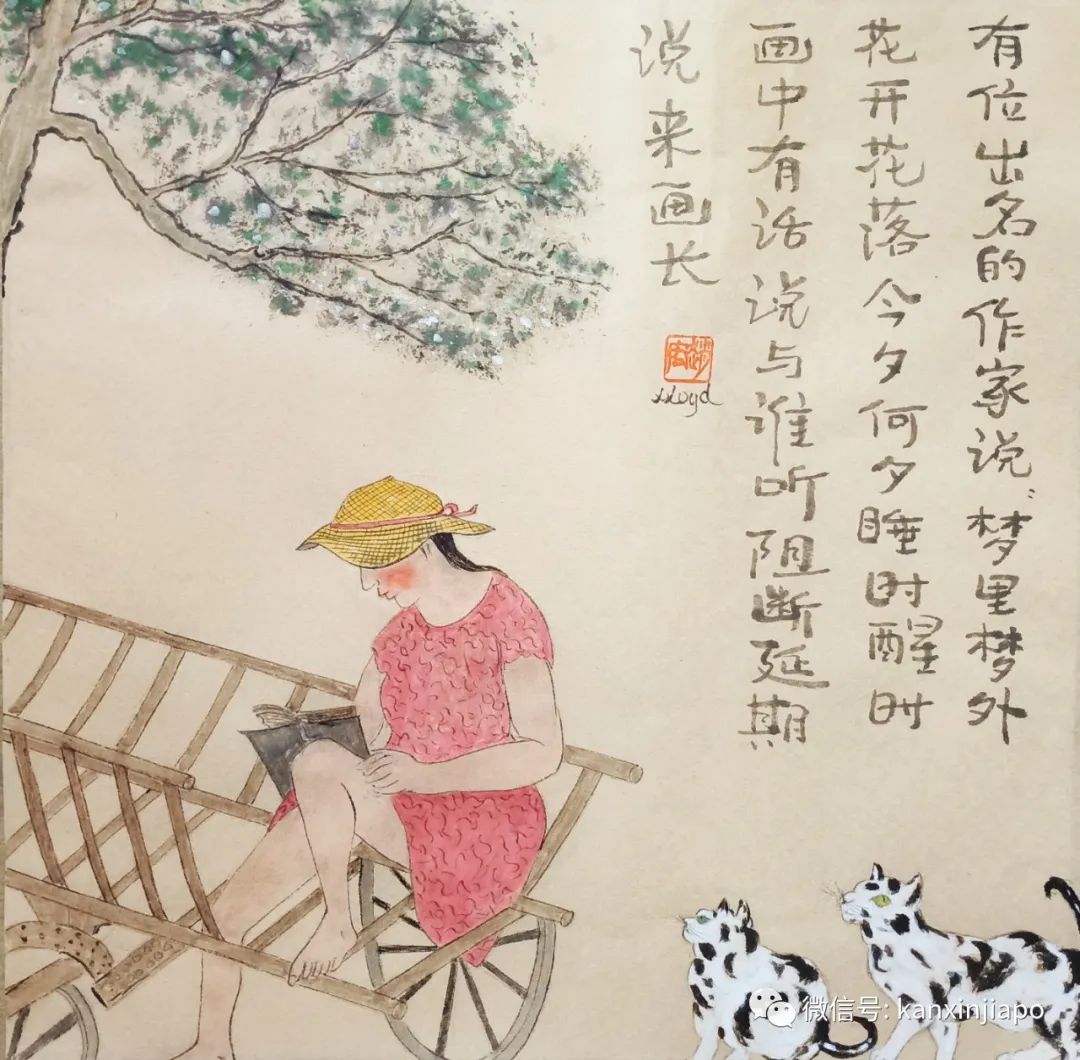 有位出名的作家说:梦里梦外
花开花落今夕何夕睡时醒时
画中有话说与谁听阻断延期
说来画长
Lloyd
微信号: kanxinjiapo